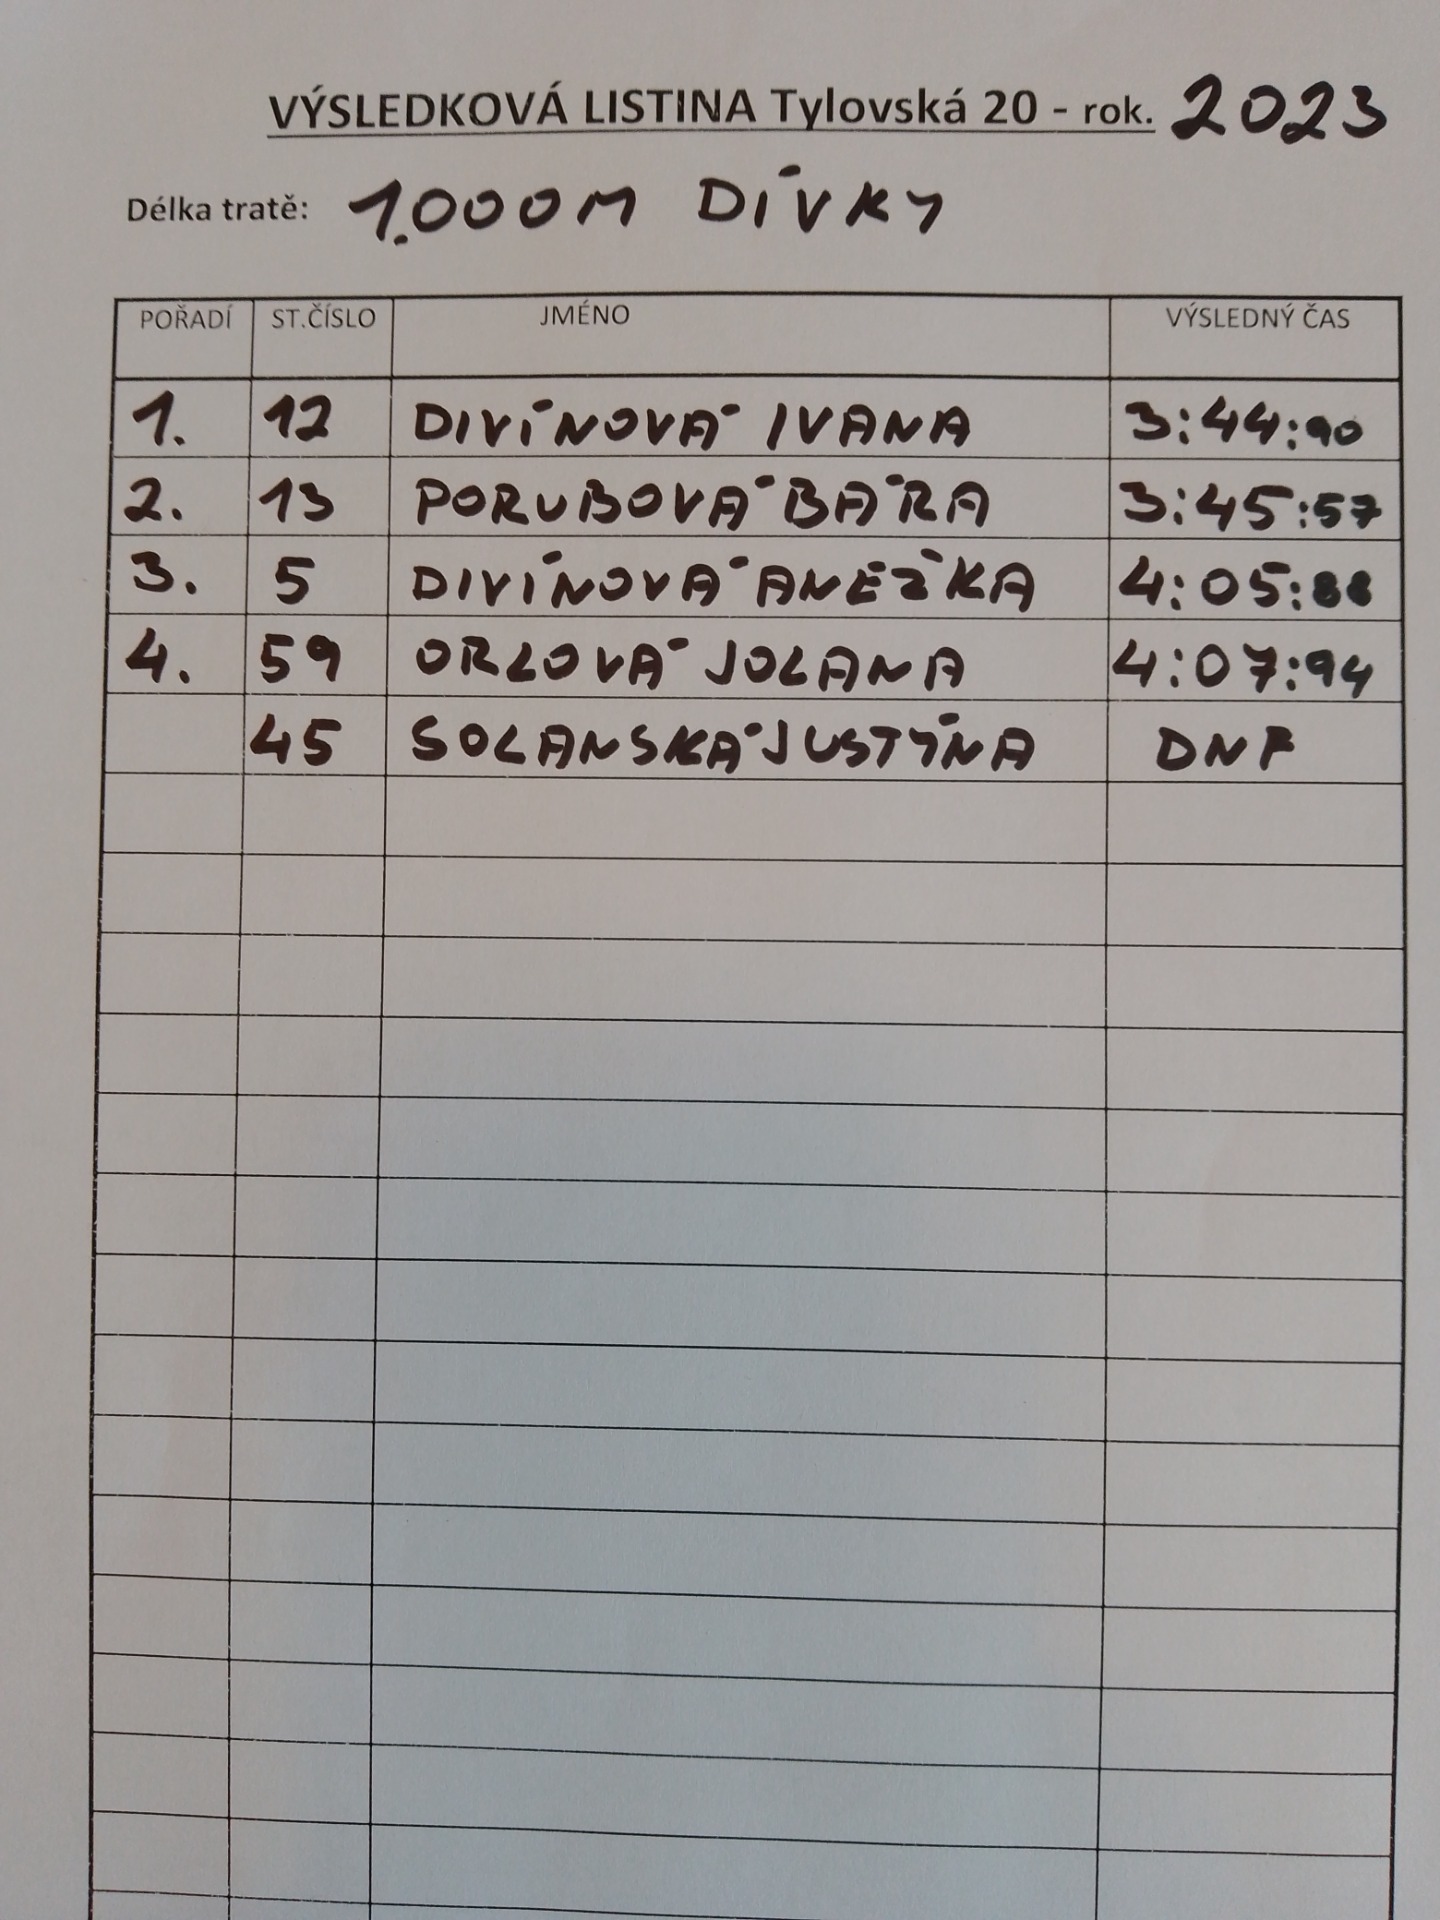 VÝSLEDKOVÁ LISTINA Tylovská 20 - rok. 2023
Délka tratě: 1.000M DÍVKY
POŘADÍ ST.ČÍSLO JMÉNO VÝSLEDNÝ ČAS
1. 12 DIVÍNOVÁ IVANA 3:44:90
2. 13 PORUBOVÁ BÁRA 3:45:57
3. 5 DIVÍNOVÁ ANEŽKA 4:05:88
4. 59 ORLOVÁ JOLANA 4:07:94
45 SOLANSKÁ JUSTÝNA DNF